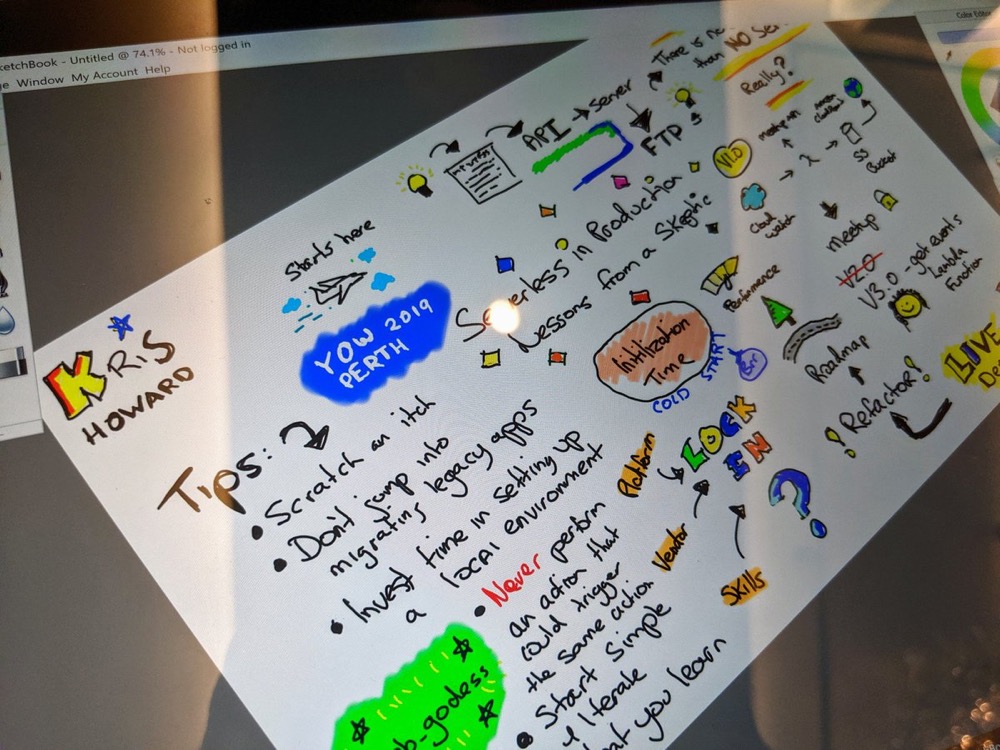 ketchBook - Untitled @ 74.1% - Not logged in
Window My Account Help
Color Editor
KRIS
HOWARD
Starts here
YOW 2019
PERTH
API → Server
FTP
There is no
than
NO Ser
Really?
Serverless in Production
Lessons from a Skeptic
V1.0
Cloud
Watch
λ
S3
Bucket
meetup
V2.0
V3.0 - get events
Lambda
Function
Performance
Initilization
Time
COLD START
Brr
Roadmap
! Refactor!
LIVE
De
LOCK
IN
Platform
Vendor
Skills
?
Tips:
• Scratch an itch
• Don't jump into
migrating legacy apps
• Invest time in setting up
a local environment
• Never perform
an action that
could trigger
the same action
• Start Simple
& Iterate
at you learn
b-godess